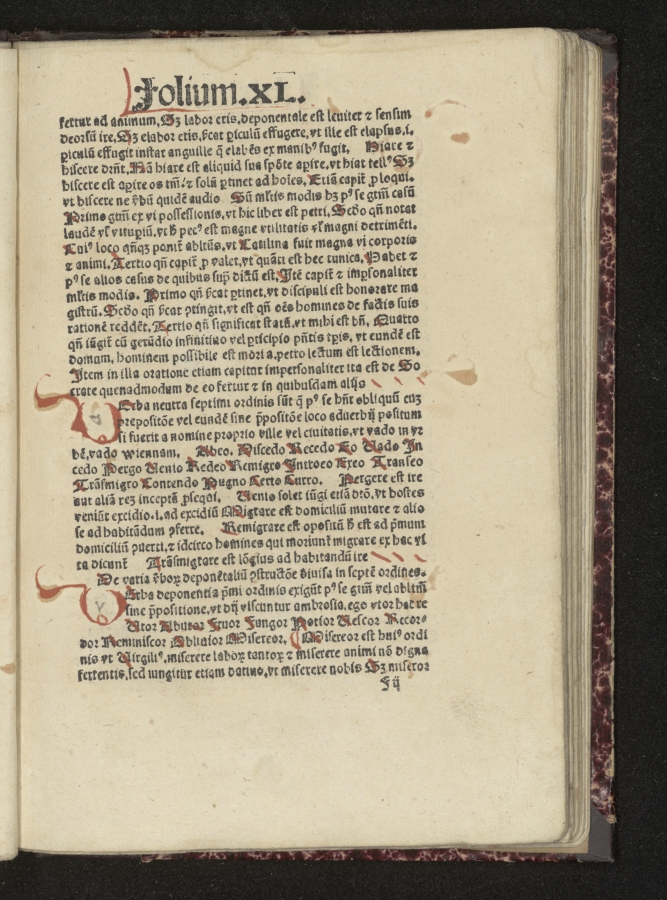 Folium.XL.
fertur ad animum. Sꝫ labor eris, deponentale est leuiter ⁊ sensim
deorsũ ire. Sꝫ elabor eris, ſicat piculũ effugere, vt ille est elapsus .i.
piculũ effugit instar anguille q̃ elabẽs ex manibꝰ fugit. Hiare ⁊
hiscere drñt. Nã hiare est aliquid sua spõte apire, vt hiat tellꝰ Sꝫ
hiscere est apire os tm̃: ⁊ solũ ptinet ad hoĩes. Etiã capit ploqui.
vt hiscere ne ṽbũ quidẽ audio Sũ mltis modis hꝫ pꝰ se gtm̃ casũ
Primo gtm̃ ex vi possessionis, vt hic liber est petri. Scd̃o qñ notat
laudẽ vl vitupiũ, vt h̃ pecꝰ est magne vtilitatis vl magni detrimẽti.
Cuiꝰ loco qñqꝫ ponit̃ abltũs, vt Catilina fuit magna vi corporis
⁊ animi. Tertio qñ capit̃ p valet, vt quãti est hec tunica. Habet ⁊
pꝰ se alios casus de quibus sup̃ dictũ est. Itẽ capit̃ ⁊ impsonaliter
mltis modis. Primo qñ ſicat ptinet, vt discipuli est honorare ma
gistrũ. Scd̃o qñ ſicat ptingit, vt est qñ oẽs homines de factis suis
rationẽ reddẽt. Tertio qñ significat statũ, vt mihi est bñ. Quarto
qñ iũgit̃ cũ gerũdio infinitiuo vel pticipio pñtis tpis, vt eundẽ est
domum, hominem possibile est mori a petro lectum est lectionem.
Item in illa oratione etiam capitur impersonaliter ita est de So
crate quemadmodum de eo fertur ⁊ in quibusdam alijs
VErba neutra septimi ordinis sũt q̃ pꝰ se hñt obliquũ cuꝫ
prepositõe vel eundẽ sine p̃positõe loco aduerbij positum
si fuerit a nomine proprio ville vel ciuitatis, vt vado in vr
bẽ, vado wiennam. Abeo. Discedo Recedo Eo Vado In
cedo Pergo Uenio Redeo Remigro Introeo Exeo Transeo
Trãsmigro Contendo Pugno Certo Curro. Pergere est ire
aut aliã reꝫ inceptã pseqni. Uenio solet iũgi etiã dtõ, vt hostes
veniũt excidio .i. ad excidiũ Migrare est domiciliũ mutare ⁊ alio
se ad habitãdum pferre. Remigrare est opositũ h̃ est ad p̃mum
domiciliũ puerti, ⁊ idcirco homines qui moriunt̃ migrare ex hac vi
ta dicunt̃ Trãsmigrare est lõgius ad habitandũ ire
De varia ṽboꝝ deponẽtaliũ pstructõe diuisa in septẽ ordines.
VErba deponentia p̃mi ordinis exigũt pꝰ se gtm̃ vel abltm̃
sine p̃positione, vt dij viscuntur ambrosia, ego vtor hac re
Utor Abutor Fruor Fungor Potior Uescor Recor-
dor Reminiscor Obliuior Misereor. Misereor est huiꝰ ordi
nis vt Uirgiliꝰ, miserere laboꝝ tantoꝝ ⁊ miserere animi nõ digna
ferentis, sed iungitur etiam datiuo, vt miserere nobis Sꝫ miseror
F ij